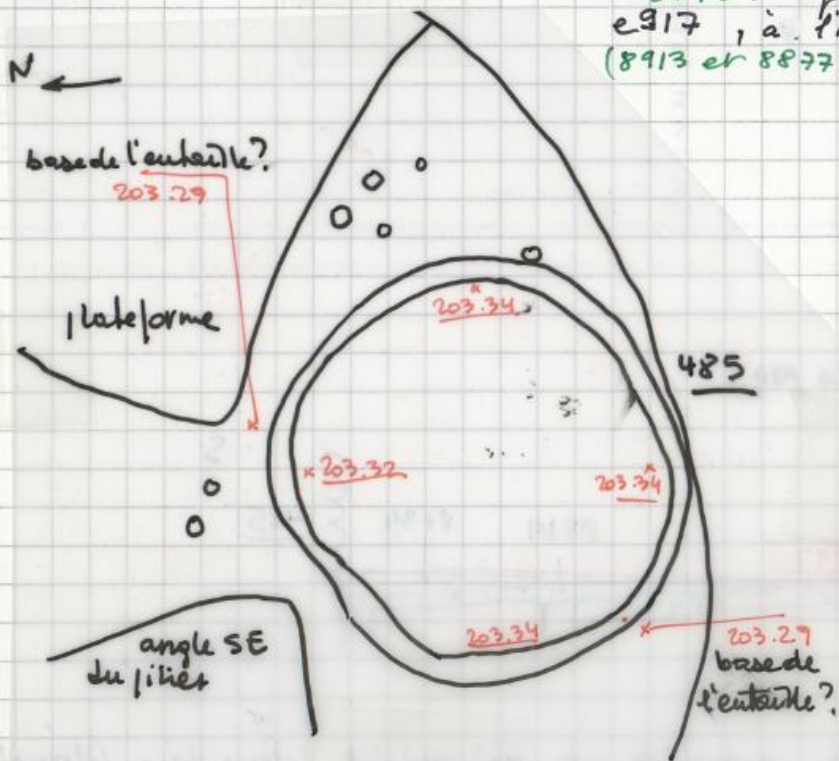 e917, à l'i
(8913 et 8877
N
base de l'entaille?
203.29
plateforme
203.34
485
203.32
203.34
203.34
203.29
base de
l'entaille?
angle SE
du pilier